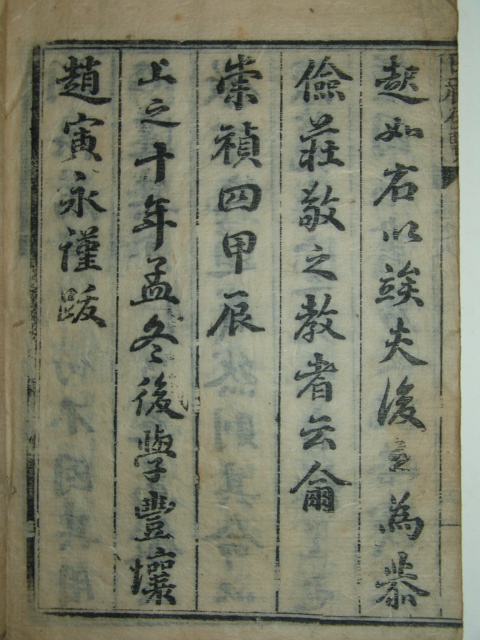 趣如右以竢夫後之為恭
儉莊敬之教者云爾
崇禎四甲辰
上之十年孟冬後學豐壤
趙寅永謹跋